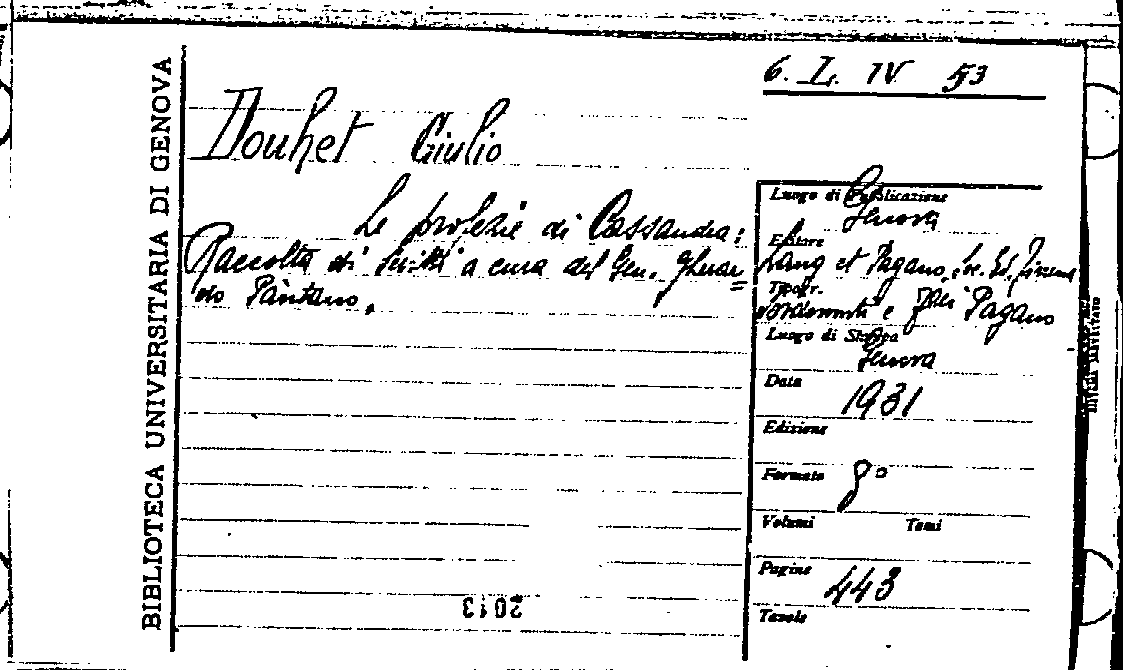 BIBLIOTECA UNIVERSITARIA DI GENOVA
6. L. IV 53
Douhet Giulio
Le profezie di Cassandra:
Raccolta di scritti a cura del Gen. Gherar=
do Pantano.
Luogo di Pubblicazione
Genova
Editore
Lang et Pagano, Soc. Ed.
Tipogr.
e Flli Pagano
Luogo di Stampa
Genova
Data
1931
Edizione
Formato
8°
Volumi Tomi
Pagine
443
Tavole
2013